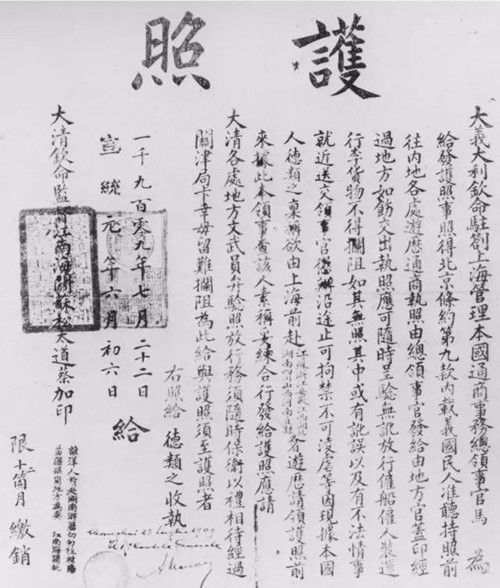 護照
大義大利欽命駐劄上海管理本國通商事務總領事官馬 為
給發護照事照得北京條約第九款內載義國民人准聽持照前
往內地各處遊歷通商執照由總領事官發給由地方官蓋印經
過地方如飭交出執照應可隨時呈驗無訛放行僱船僱人裝運
行李貨物不得攔阻如其無照其中或有訛誤以及有不法情事
就近送交領事官懲辦沿途止可拘禁不可凌虐等因現據本國
人德類之稟稱欲由上海前赴
各省遊歷請領護照前
來據此本領事查該人素稱安練合行發給護照應請
大清各處地方文武員弁驗照放行務須隨時保衛以禮相待經過
關津局卡幸毋留難攔阻為此給與護照須至護照者
右照給 德類之收執
一千九百零九年七月二十二日
宣統元年六月初六日 給
大清欽命監督江南海關蘇松太道蔡加印
限十二箇月繳銷
Shanghai